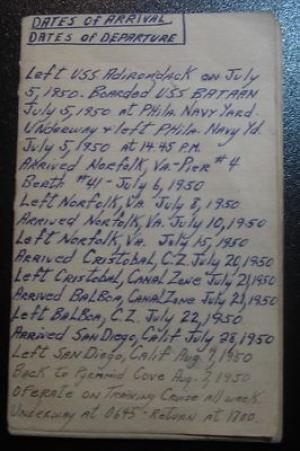 DATES OF ARRIVAL
DATES OF DEPARTURE
Left USS Adirondack on July
5, 1950. Boarded USS BATAAN
July 5, 1950 at Phila. Navy Yard.
Underway & left Phila. Navy Yd.
July 5, 1950 at 1445 P.M.
Arrived Norfolk, Va. - Pier #4
Berth #41 - July 6, 1950
Left Norfolk, Va. July 8, 1950
Arrived Norfolk, Va. July 10, 1950
Left Norfolk, Va. July 15, 1950
Arrived Cristobal, C.Z. July 20, 1950
Left Cristobal, Canal Zone July 21, 1950
Arrived Balboa, Canal Zone July 21, 1950
Left Balboa, C.Z. July 22, 1950
Arrived San Diego, Calif July 28, 1950
Left San Diego, Calif Aug. 7, 1950
Back to Pyramid Cove Aug. 7, 1950
Operate on Training Cruise all week
Underway at 0645 - Return at 1700.